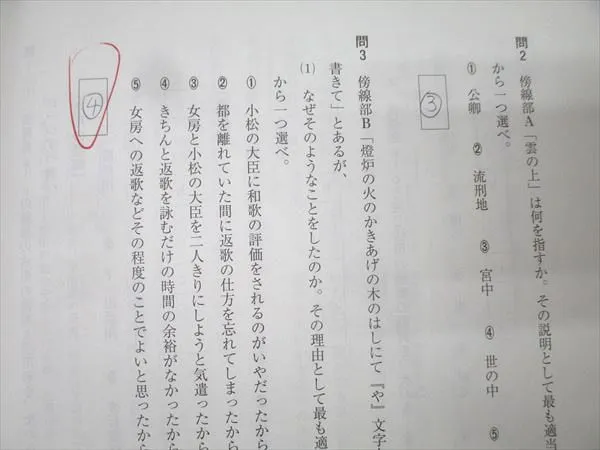 問2 傍線部A「雲の上」は何を指すか。その説明として最も適当
から一つ選べ。
① 公卿 ② 流刑地 ③ 宮中 ④ 世の中 ⑤
③
問3 傍線部B「燈炉の火のかきあげの木のはしにて『や』文字
書きて」とあるが、
(1) なぜそのようなことをしたのか。その理由として最も適
から一つ選べ。
① 小松の大臣に和歌の評価をされるのがいやだったから
② 都を離れていた間に返歌の仕方を忘れてしまったから
③ 女房と小松の大臣を二人きりにしようと気遣ったから
④ きちんと返歌を詠むだけの時間の余裕がなかったから
⑤ 女房への返歌などその程度のことでよいと思ったから
④